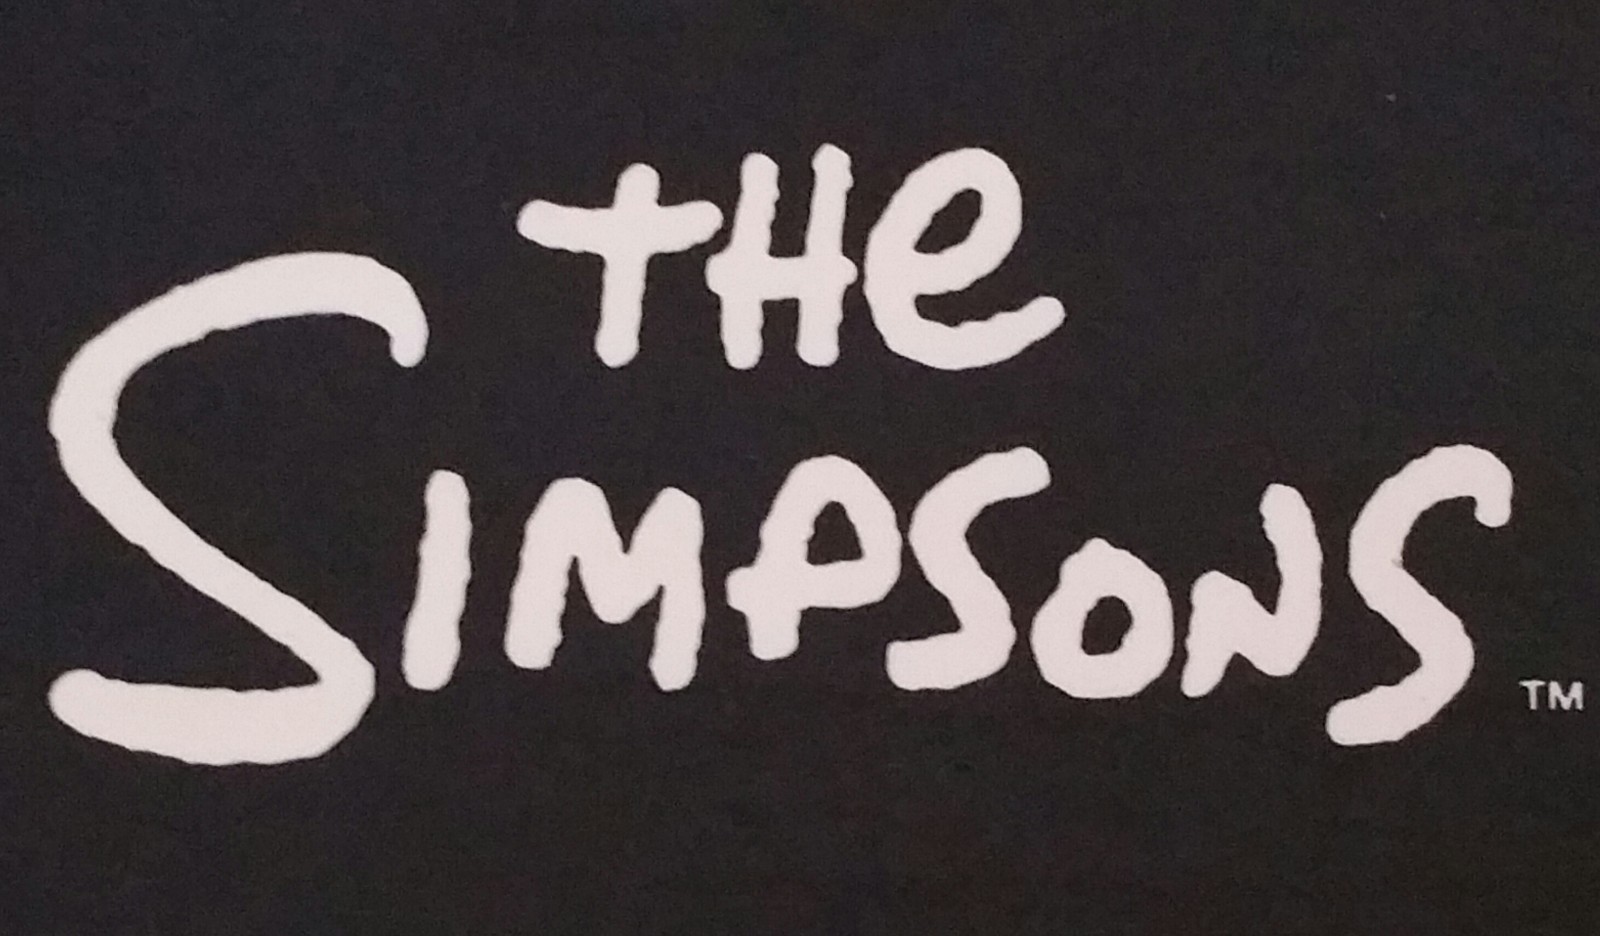 tHe
SIMPSONS TM